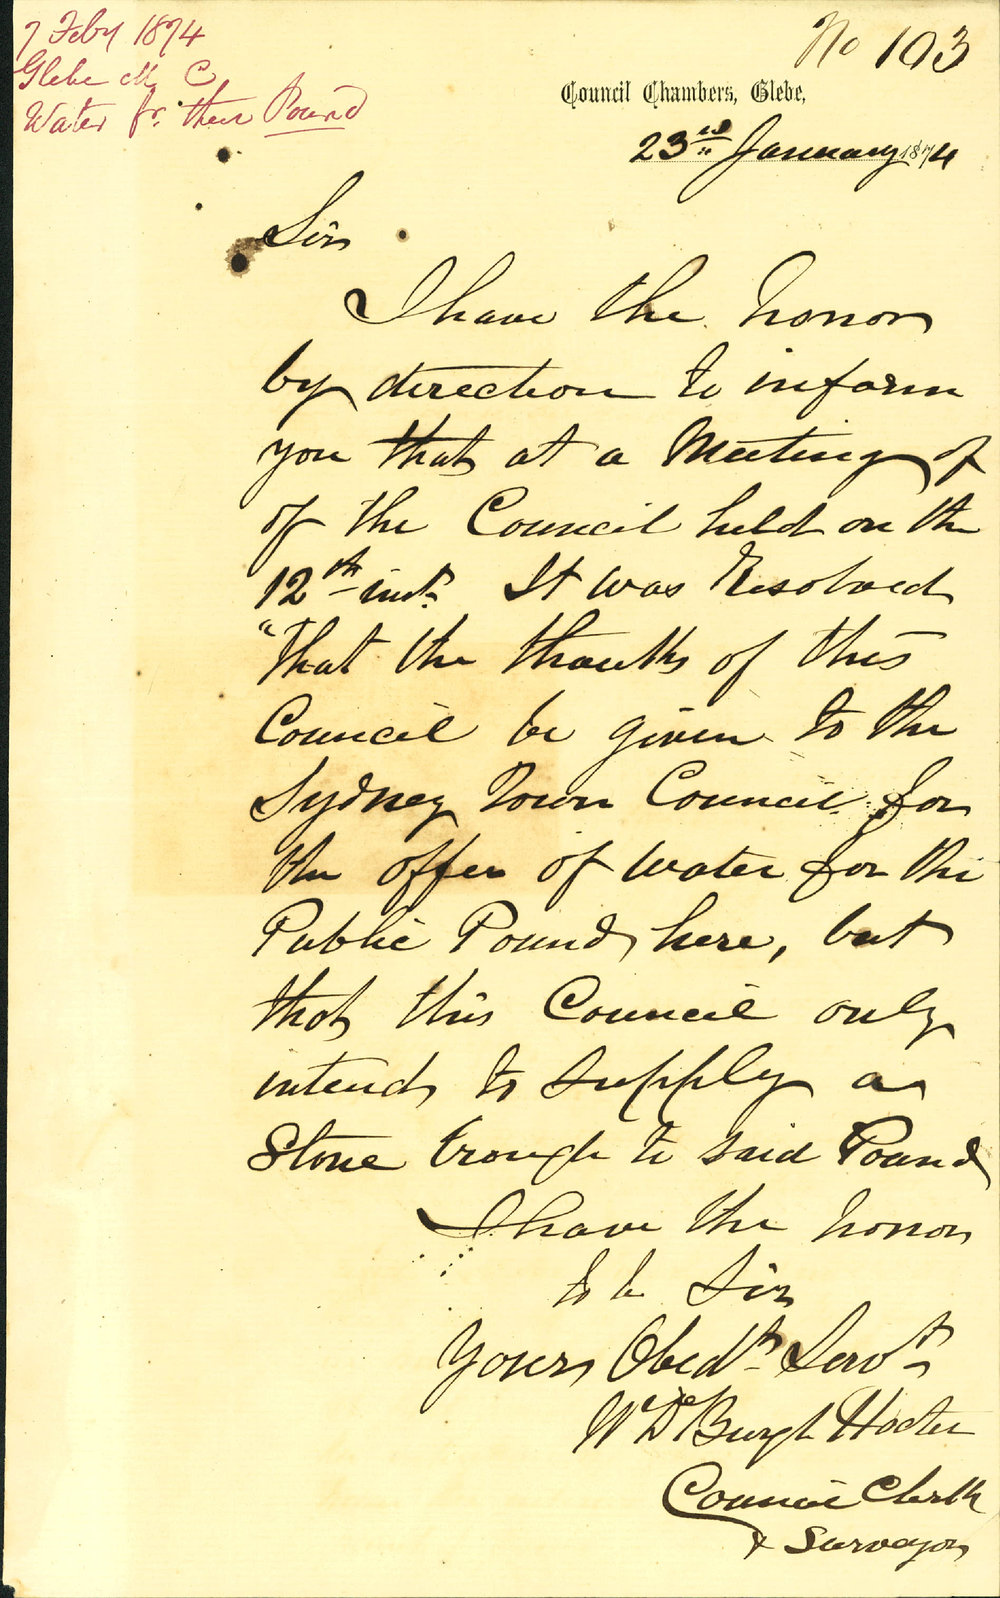 7 Feby 1874
Glebe M. C
Water fr. their Pound
No 103
Council Chambers, Glebe,
23rd January 1874
Sir
I have the honor
by direction to inform
you that at a Meeting of
of the Council held on the
12th inst. It was Resolved
"That the thanks of this
Council be given to the
Sydney Town Council for
the offer of water for the
Public Pound here, but
that this Council only
intends to supply a
Stone trough to said Pound
I have the honor
to be Sir
Yours Obedt. Servt.
W De Burgh Hocter
Council Clerk
& Surveyor